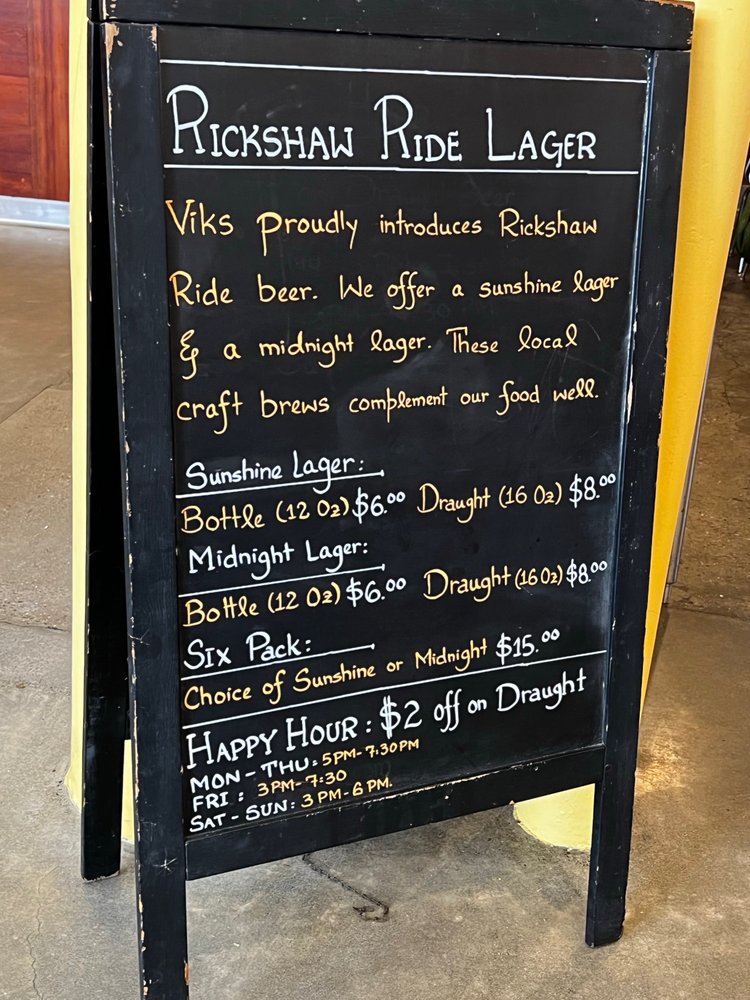 RICKSHAW RIDE LAGER
Viks proudly introduces Rickshaw
Ride beer. We offer a sunshine lager
& a midnight lager. These local
craft brews complement our food well.
Sunshine Lager:
Bottle (12 Oz) $6.00 Draught (16 Oz) $8.00
Midnight Lager:
Bottle (12 Oz) $6.00 Draught (16 Oz) $8.00
SIX PACK:
Choice of Sunshine or Midnight $15.00
HAPPY HOUR: $2 off on Draught
MON - THU: 5PM - 7:30PM
FRI: 3PM - 7:30
SAT - SUN: 3PM - 6PM.